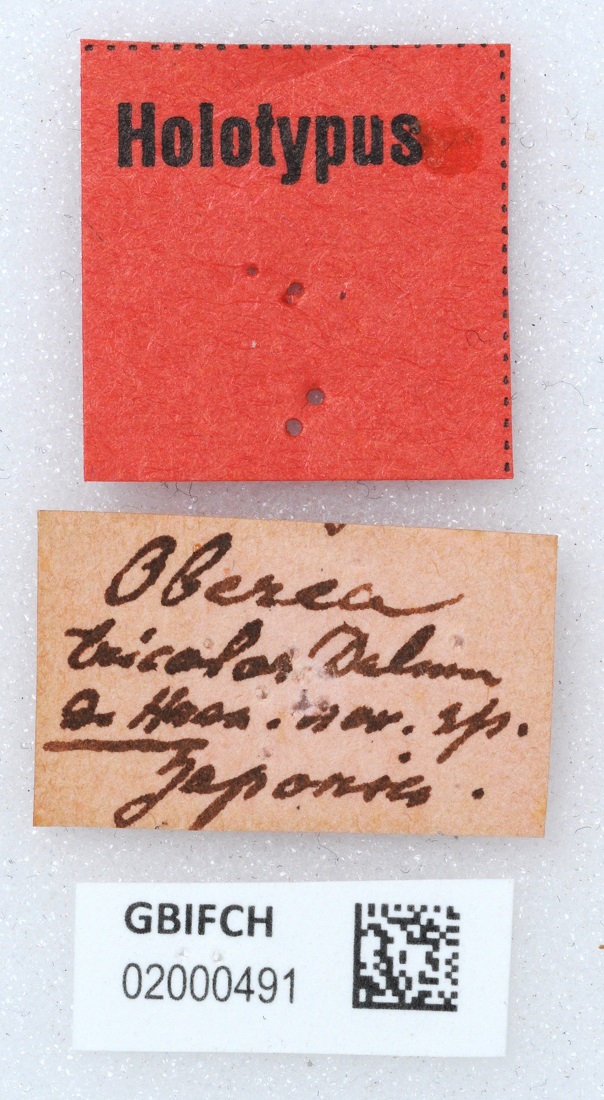 Holotypus
Oberea
tricolor Delmn
nov. sp.
Japonica.
GBIFCH
02000491